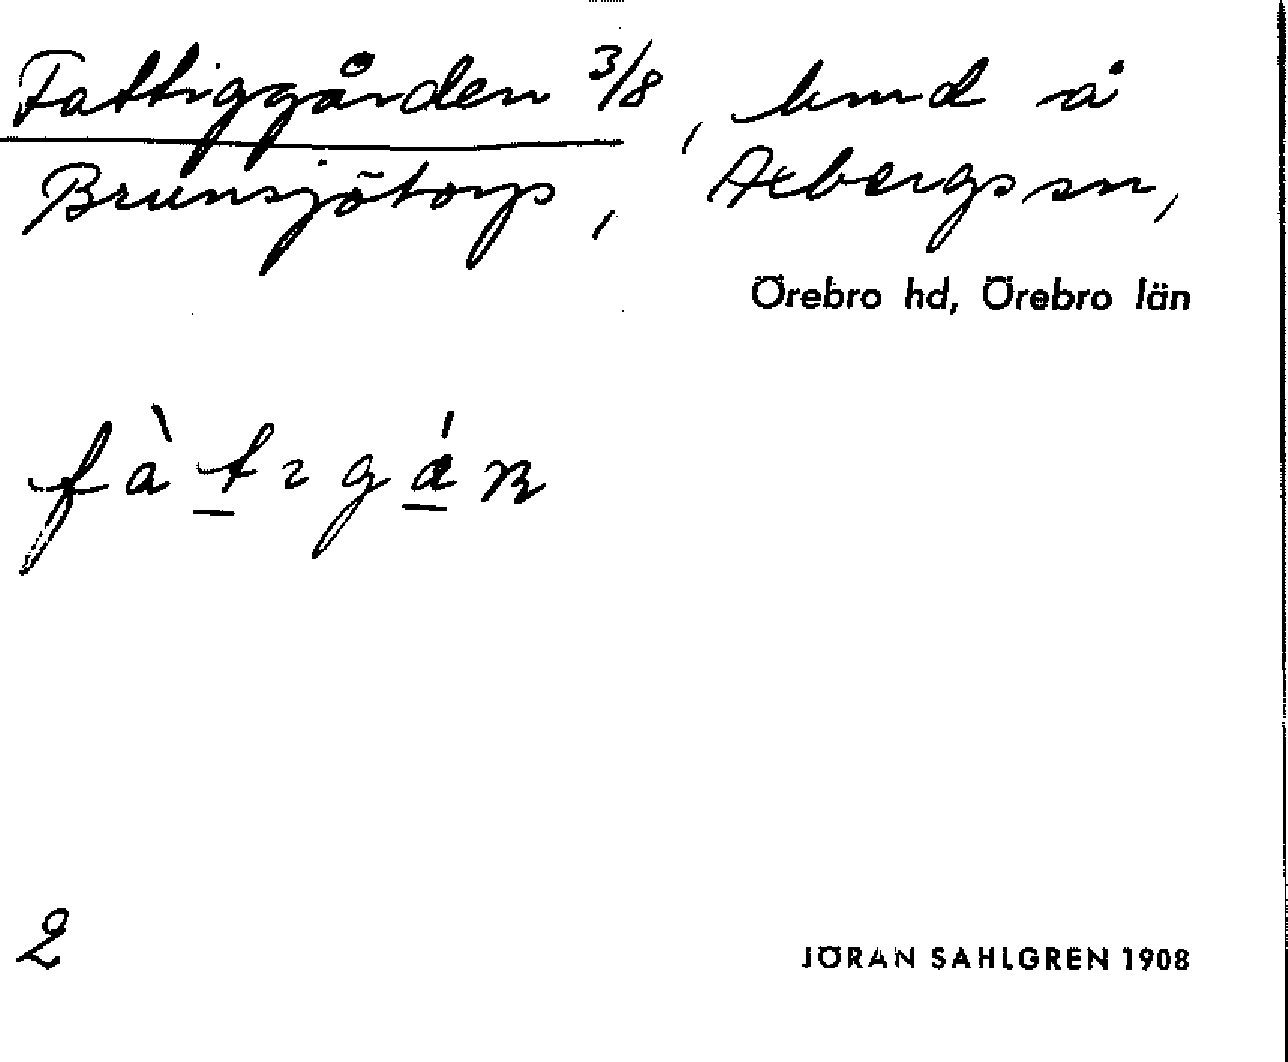 Fattiggården 3/8, lund å
Brunsjötorp, Axbergs sn,
Örebro hd, Örebro län
fàtıgán
2
JÖRAN SAHLGREN 1908